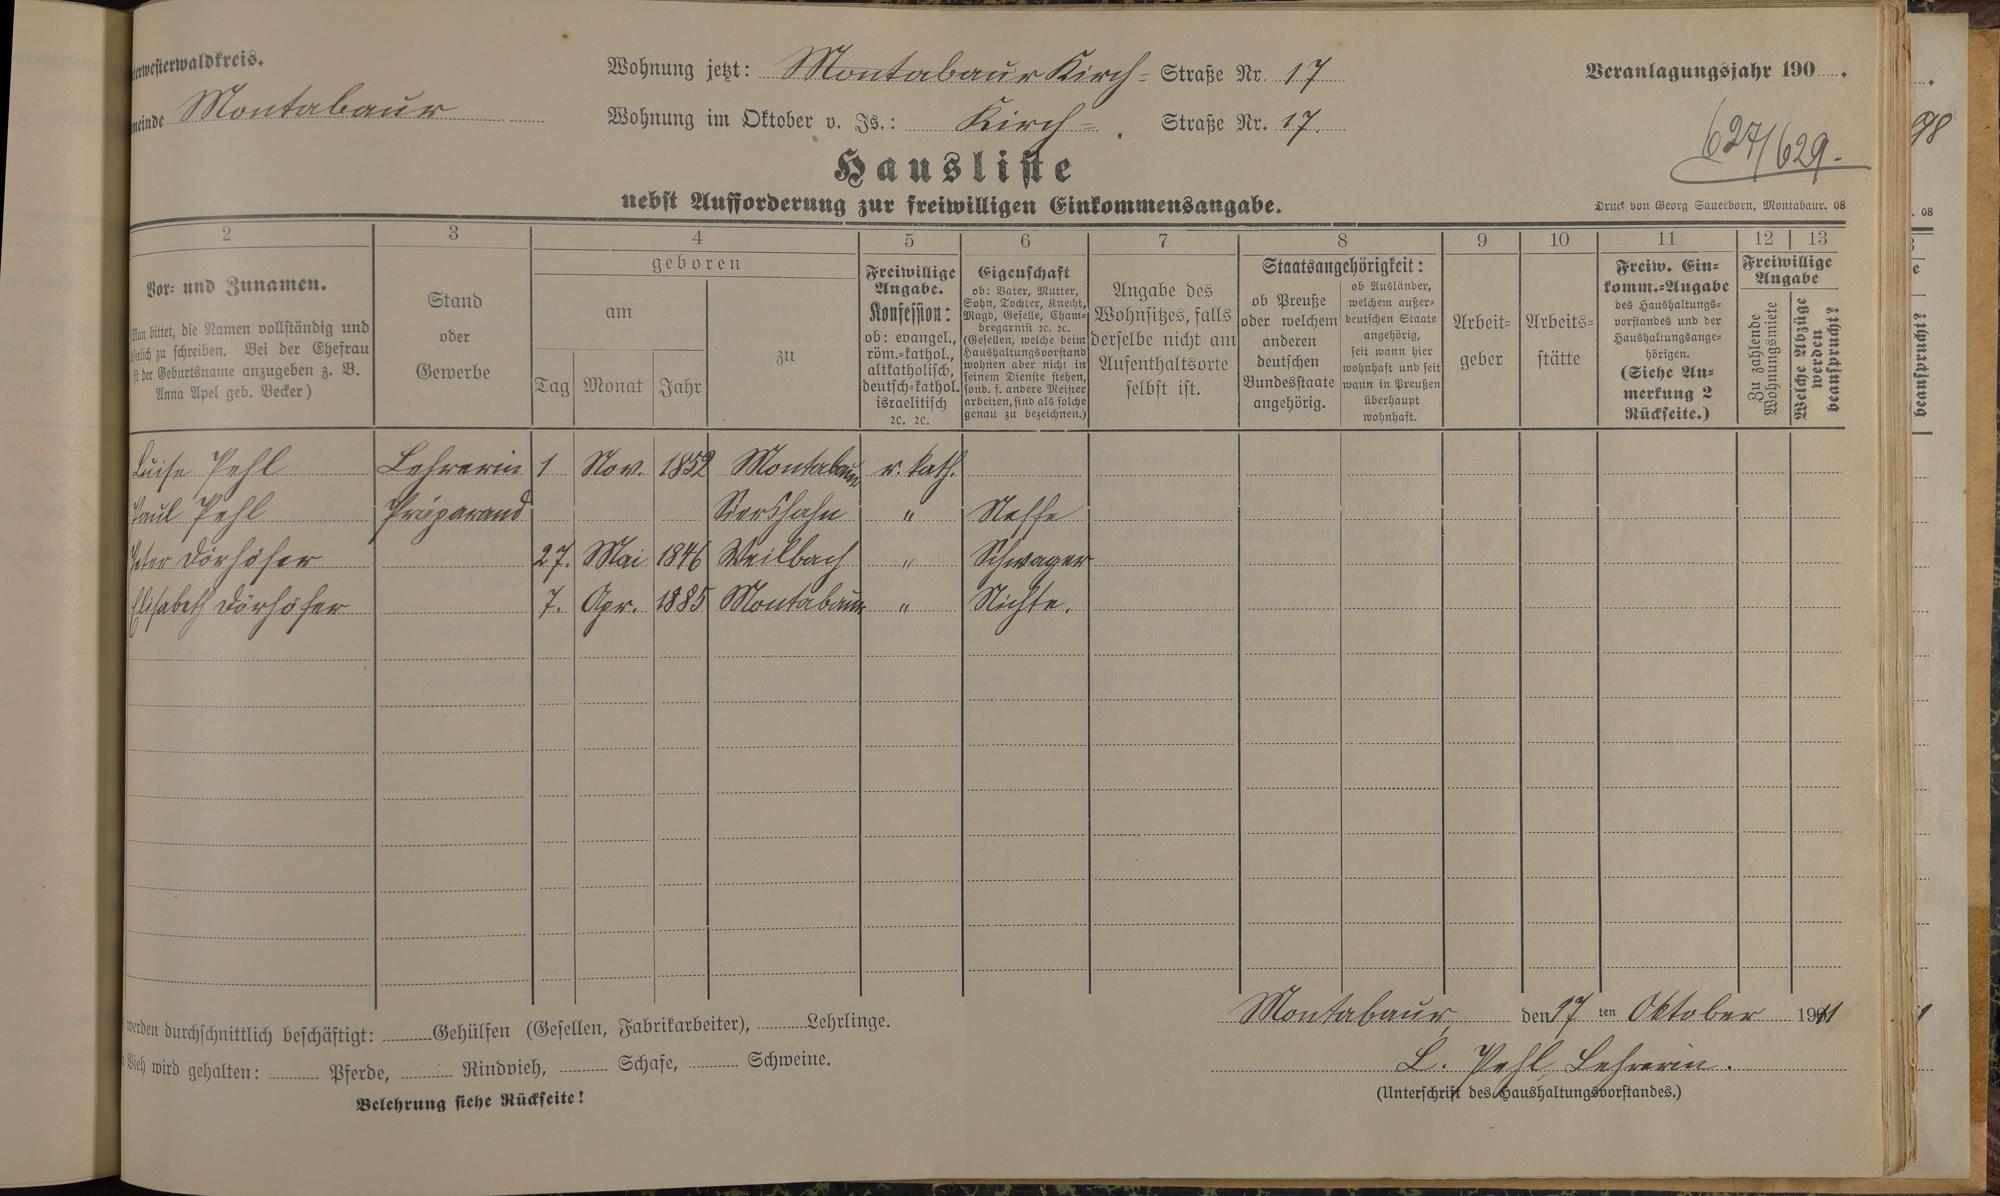 terwesterwaldkreis.
meinde Montabaur
Wohnung jetzt: Montabaur Kirch- Straße Nr. 17
Wohnung im Oktober v. Js.: Kirch- Straße Nr. 17.
Veranlagungsjahr 190 .
627/629.
98
Hausliste
nebst Aufforderung zur freiwilligen Einkommensangabe.
Druck von Georg Sauerborn, Montabaur. 08
. 08
2 3 4 5 6 7 8 9 10 11 12 13
Vor- und Zunamen.
Man bittet, die Namen vollständig und
serlich zu schreiben. Bei der Ehefrau
ist der Geburtsname anzugeben z. B.
Anna Apel geb. Becker)
Stand
oder
Gewerbe
geboren
am
Tag Monat Jahr
zu
Freiwillige
Angabe.
Konfession:
ob: evangel.,
röm.-kathol.,
altkatholisch,
deutsch-kathol.
israelitisch
ꝛc. ꝛc.
Eigenschaft
ob: Vater, Mutter,
Sohn, Tochter, Knecht,
Magd, Geselle, Cham-
bregarnist ꝛc. ꝛc.
(Gesellen, welche beim
Haushaltungsvorstand
wohnen aber nicht in
seinem Dienste stehen,
sond. f. andere Meister
arbeiten, sind als solche
genau zu bezeichnen.)
Angabe des
Wohnsitzes, falls
derselbe nicht am
Aufenthaltsorte
selbst ist.
Staatsangehörigkeit:
ob Preuße
oder welchem
anderen
deutschen
Bundesstaate
angehörig.
ob Ausländer,
welchem außer-
deutschen Staate
angehörig,
seit wann hier
wohnhaft und seit
wann in Preußen
überhaupt
wohnhaft.
Arbeit-
geber
Arbeits-
stätte
Freiw. Ein-
komm.-Angabe
des Haushaltungs-
vorstandes und der
Haushaltungsange-
hörigen.
(Siehe An-
merkung 2
Rückseite.)
Freiwillige
Angabe
Zu zahlende
Wohnungsmiete
Welche Abzüge
werden
beansprucht?
beansprucht?
Luise Pehl Lehrerin 1 Nov. 1852 Montabaur r. kath.
Paul Pehl Präparand Siershahn " Neffe
Peter Dörhöfer 27. Mai 1846 Weilbach " Schwager
Elisabeth Dörhöfer 7. Apr. 1885 Montabaur " Nichte.
werden durchschnittlich beschäftigt: Gehülfen (Gesellen, Fabrikarbeiter), Lehrlinge.
Vieh wird gehalten: Pferde, Rindvieh, Schafe, Schweine.
Belehrung siehe Rückseite!
Montabaur, den 17 ten Oktober 1911
L. Pehl, Lehrerin.
(Unterschrift des Haushaltungsvorstandes.)